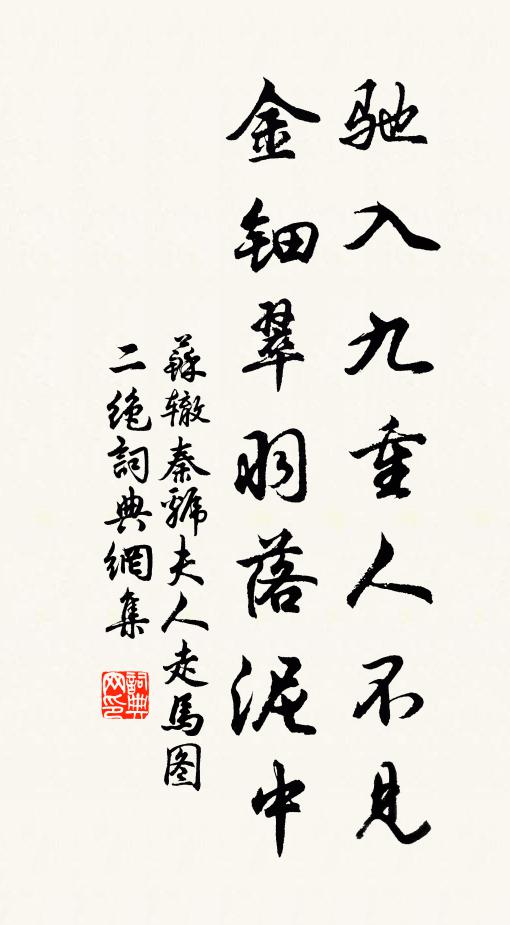 驰入九重人不見
金钿翠羽落泥中
蘇辙秦虢夫人走馬图
二绝詞典網集
詞典网印